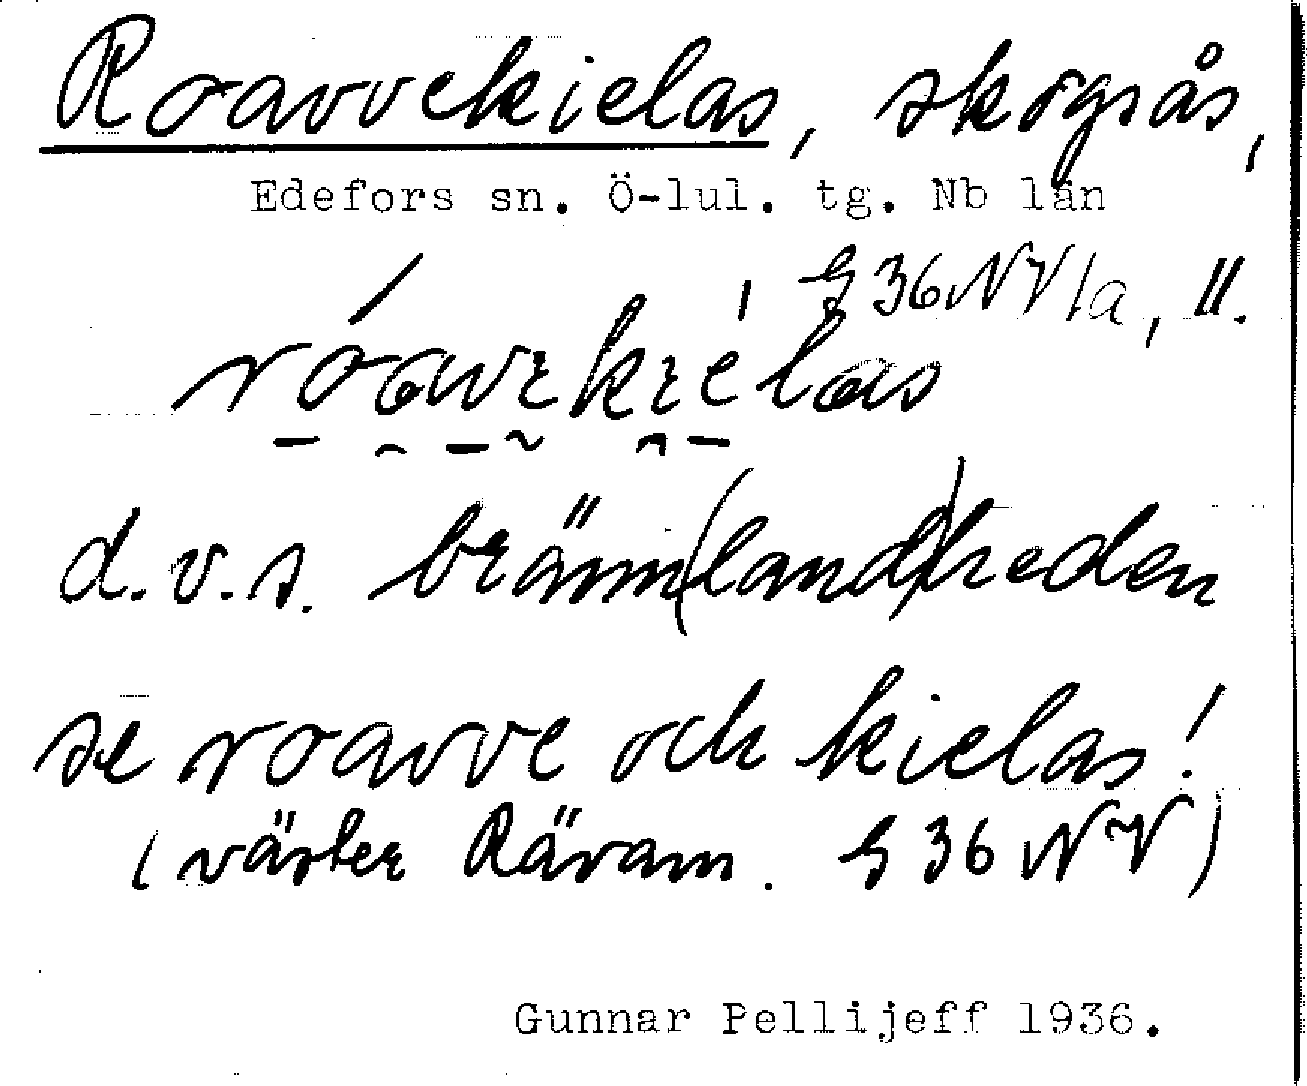 Roavvekielas, skogsås,
Edefors sn. Ö-lul. tg. Nb län
G 36 NV/a, II.
róavɛkiélas
d.v.s. bränn(land)heden
se roavve och kielas!
(väster Rävam. G 36 NV)
Gunnar Pellijeff 1936.